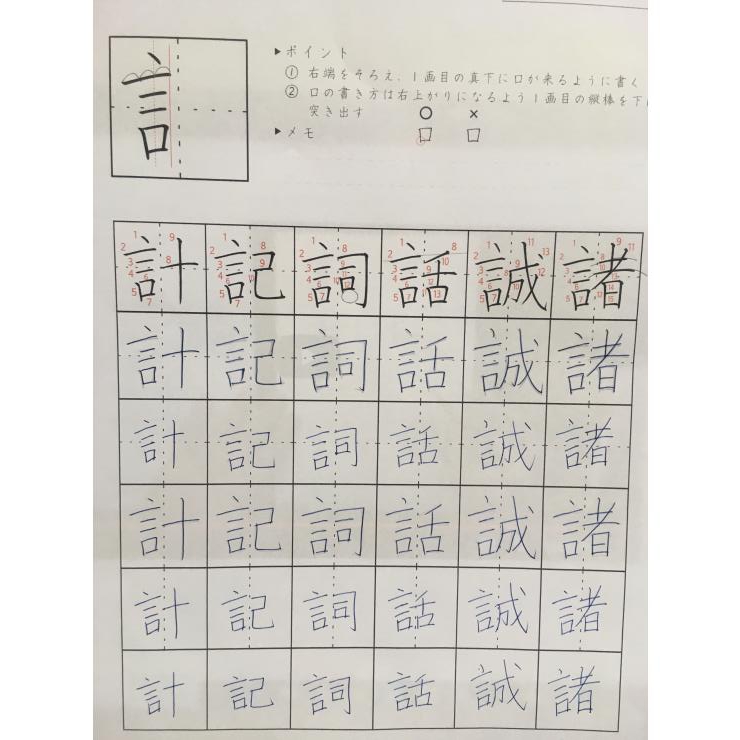 言
▶ポイント
① 右端をそろえ、1画目の真下に口が来るように書く
② 口の書き方は右上がりになるよう1画目の縦棒を下に
突き出す ○ ×
▶メモ 口 口
計 記 詞 話 誠 諸
計 記 詞 話 誠 諸
計 記 詞 話 誠 諸
計 記 詞 話 誠 諸
計 記 詞 話 誠 諸
計 記 詞 話 誠 諸